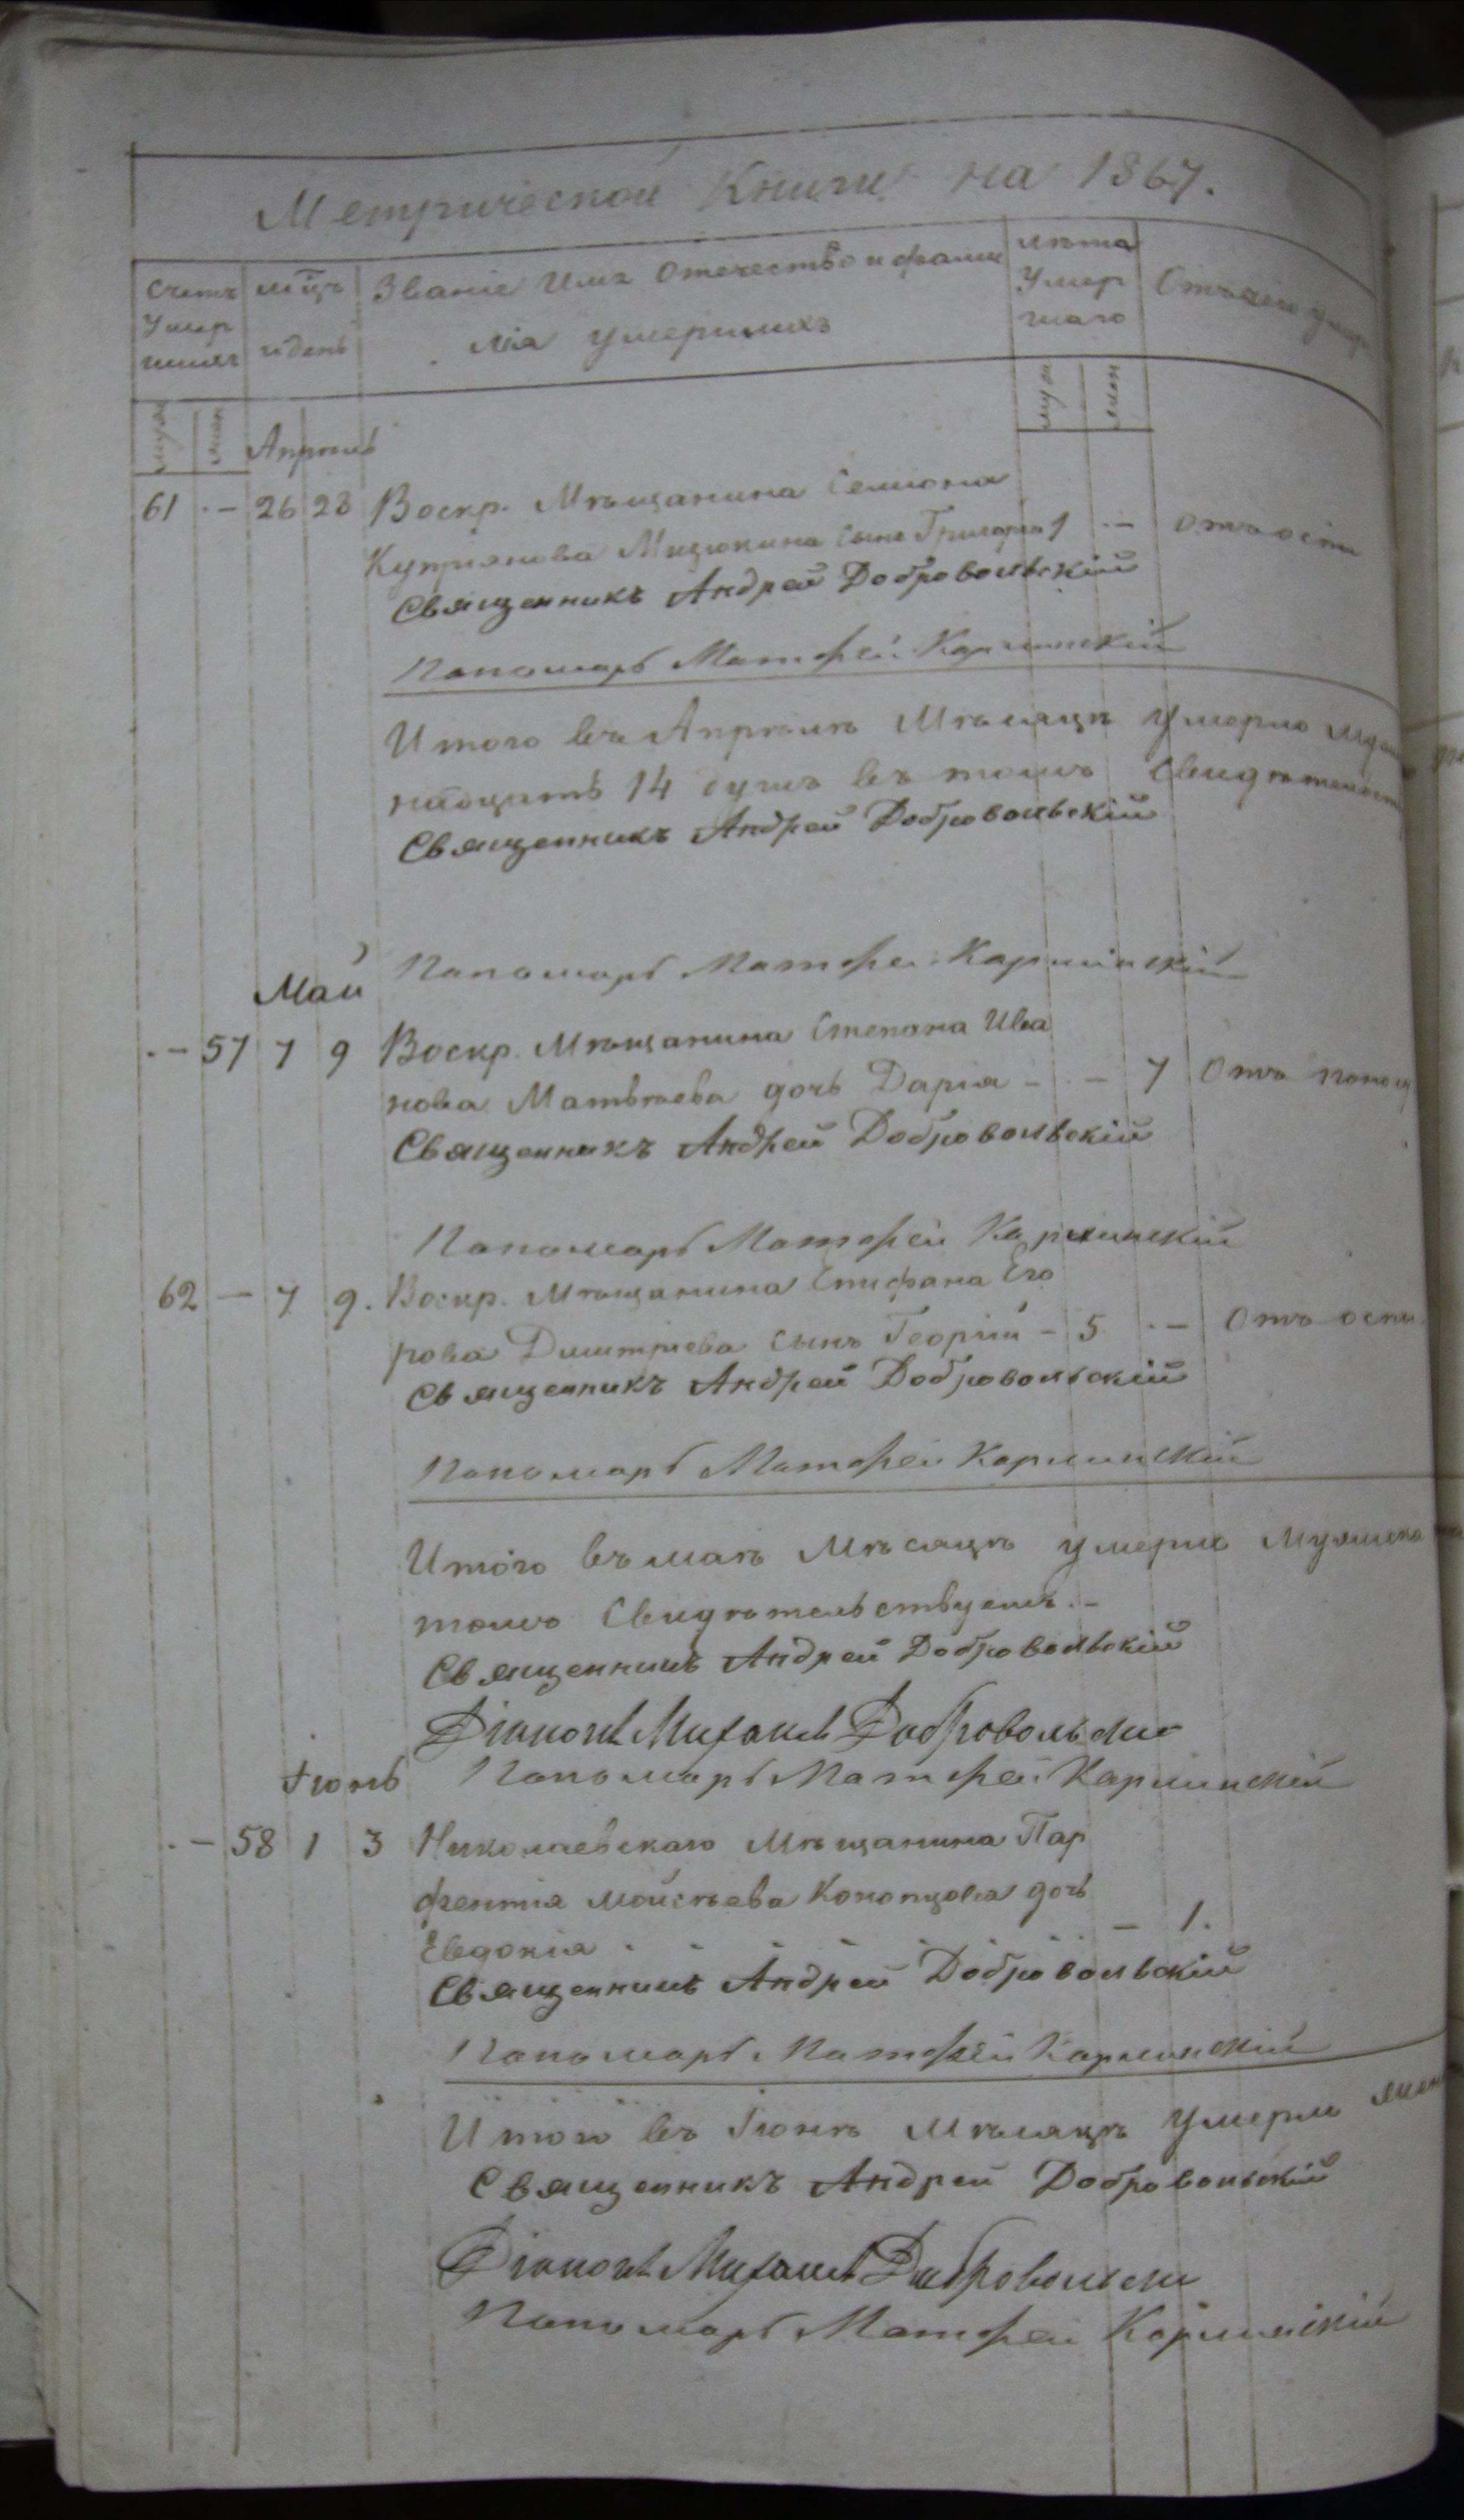 Метрической Книги на 1867.
Счетъ Умер шихъ
мцъ и день
Званіе Имя Отечество и фами
лія умершихъ
лѣта Умер шаго
Отъ чего умер
муж жен
муж жен
Апрѣль
61 - 26 28 Воскр. Мѣщанина Семиона
Куприянова Мицюкина сынъ Григорій 1 - Отъ оспы
Священникъ Андрей Добровольскій
Пономарь Матфей Карминскій
Итого въ Апрѣлѣ Мѣсяцѣ умерло
надцать 14 душъ въ томъ Свидѣтельст
Священникъ Андрей Добровольскій
Пономарь Матфей Карминскій
Май
- 57 7 9 Воскр. Мѣщанина Степана Ива
нова Матвѣева дочь Дарія - - 7 Отъ
Священникъ Андрей Добровольскій
Пономарь Матфей Карминскій
62 - 7 9. Воскр. Мѣщанина Епифана Его
рова Дмитріева сынъ Георгій - 5 - Отъ оспы
Священникъ Андрей Добровольскій
Пономарь Матфей Карминскій
Итого въ маѣ Мѣсяцѣ умерло Мужеска
томъ Свидѣтельствуемъ. -
Священникъ Андрей Добровольскій
Діаконъ Михаилъ Добровольскій
Пономарь Матфей Карминскій
Іюнь
- 58 1 3 Николаевскаго Мѣщанина Пар
фентія Мойсѣева Конопцова дочь
Евдокія - - - - - 1.
Священникъ Андрей Добровольскій
Пономарь Матфей Карминскій
Итого въ Іюнѣ Мѣсяцѣ Умерло жен
Священникъ Андрей Добровольскій
Діаконъ Михаилъ Добровольскій
Пономарь Матфей Карминскій